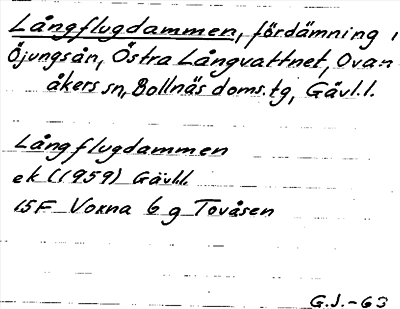 Långflugdammen, fördämning i
Öjungsån, Östra Långvattnet, Ovan-
åkers sn, Bollnäs doms.tg, Gävl.l.
Långflugdammen
ek (1959) Gävl.l.
15F Voxna 6 g Tovåsen
G.J.-63